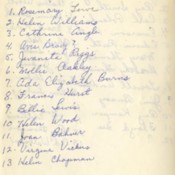 1. Rosemary Lowe
2. Helen Williams
3. Cathrine Angle
4. Ann Brady?
5. Juvaneta Biggs
6. Mollie Oakley
7. Ada Elizabeth Burns
8. Frances Hurst
9. Bettie Lewis
10. Helen Wood
11. Joan
12. Virginia
13. Helen Chapman